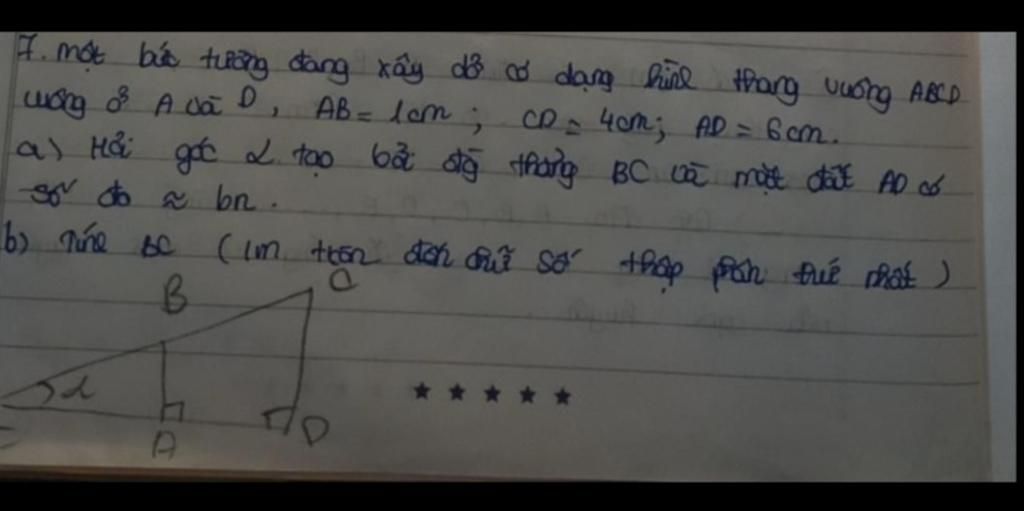 7. một bức tường đang xây dở có dạng hình thang vuông ABCD
vuông ở A và D, AB = 1cm; CD = 4cm; AD = 6cm.
a) Hỏi góc α tạo bởi đg thẳng BC và mặt đất AD có
số đo ≈ bn.
b) Tính BC (làm tròn đến chữ số thập phân thứ nhất)
B C
α
A D